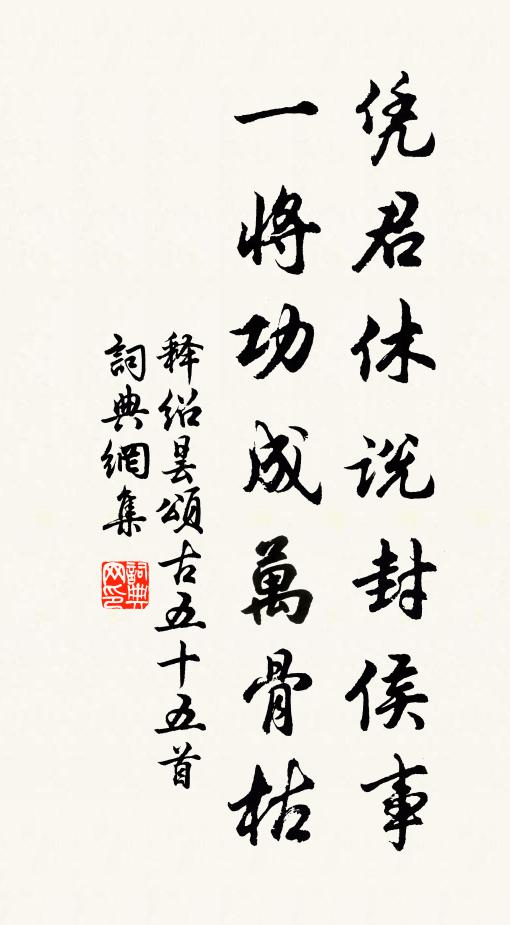 凭君休说封侯事
一将功成萬骨枯
释绍昙頌古五十五首
詞典網集
詞典
网印